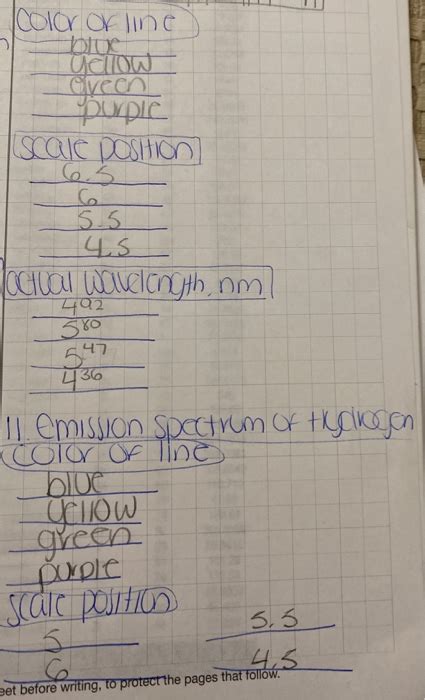 color of line
blue
yellow
green
purple
scale position
6.5
6
5.5
4.5
actual wavelength, nm
492
580
547
436
11. Emission Spectrum of Hydrogen
color of line
blue
yellow
green
purple
scale position
5
5.5
6
4.5
eet before writing, to protect the pages that follow.